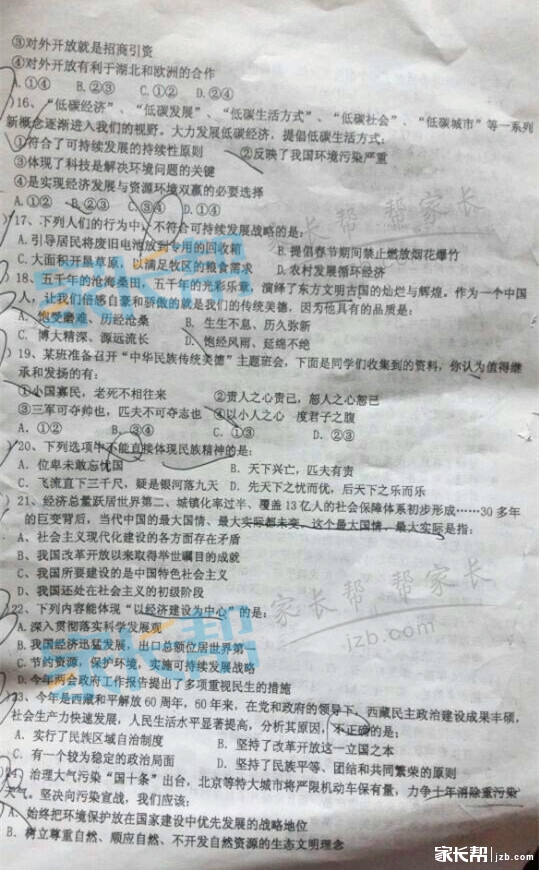 ③对外开放就是招商引资
④对外开放有利于湖北和欧洲的合作
A.①④ B.②③ C.①② D.②④
)16、“低碳经济”、“低碳发展”、“低碳生活方式”、“低碳社会”、“低碳城市”等一系列
新概念逐渐进入我们的视野。大力发展低碳经济，提倡低碳生活方式：
①符合了可持续发展的持续性原则 ②反映了我国环境污染严重
③体现了科技是解决环境问题的关键
④是实现经济发展与资源环境双赢的必要选择
A.①② B.②③ C.③④ D.①④
)17、下列人们的行为中，不符合可持续发展战略的是：
A.引导居民将废旧电池放到专用的回收箱 B.提倡春节期间禁止燃放烟花爆竹
C.大面积开垦草原，以满足牧区的粮食需求 D.农村发展循环经济
)18、五千年的沧海桑田，五千年的光彩乐章，演绎了东方文明古国的灿烂与辉煌。作为一个中国
人，让我们倍感自豪和骄傲的就是我们的传统美德，因为他具有的品质是：
A、饱受磨难、历经沧桑 B、生生不息、历久弥新
C、博大精深、源远流长 D、饱经风雨、延绵不绝
)19、某班准备召开“中华民族传统美德”主题班会，下面是同学们收集到的资料，你认为值得继
承和发扬的有：
①小国寡民，老死不相往来 ②责人之心责己，恕人之心恕己
③三军可夺帅也，匹夫不可夺志也 ④以小人之心 度君子之腹
A.①② B.②③ C.①③ D.②③
)20、下列选项中不能直接体现民族精神的是：
A、位卑未敢忘忧国 B、天下兴亡，匹夫有责
C、飞流直下三千尺，疑是银河落九天 D、先天下之忧而忧，后天下之乐而乐
)21、经济总量跃居世界第二、城镇化率过半、覆盖13亿人的社会保障体系初步形成……30多年
的巨变背后，当代中国的最大国情、最大实际都未变。这个最大国情、最大实际是指：
A、社会主义现代化建设的各方面存在矛盾
B、我国改革开放以来取得举世瞩目的成就
C、我国所要建设的是中国特色社会主义
D、我国还处在社会主义的初级阶段
)22、下列内容能体现“以经济建设为中心”的是：
A.深入贯彻落实科学发展观
B.我国经济迅猛发展，出口总额位居世界第一
C.节约资源，保护环境，实施可持续发展战略
D.今年两会政府工作报告提出了多项重视民生的措施
)23、今年是西藏和平解放60周年，60年来，在党和政府的领导下，西藏民主政治建设成果丰硕，
社会生产力快速发展，人民生活水平显著提高，分析其原因，不正确的是：
A、实行了民族区域自治制度 B、坚持了改革开放这一立国之本
C、有一个较为稳定的政治局面 D、坚持了民族平等、团结和共同繁荣的原则
)24、治理大气污染“国十条”出台，北京等特大城市将严限机动车保有量，力争十年消除重污染
天气。坚决向污染宣战，我们应该：
A、始终把环境保护放在国家建设中优先发展的战略地位
B、树立尊重自然、顺应自然、不开发自然资源的生态文明理念
家长帮 帮家长
家长帮
家长帮 帮家长
jzb.com
家长帮
家长帮 jzb.com